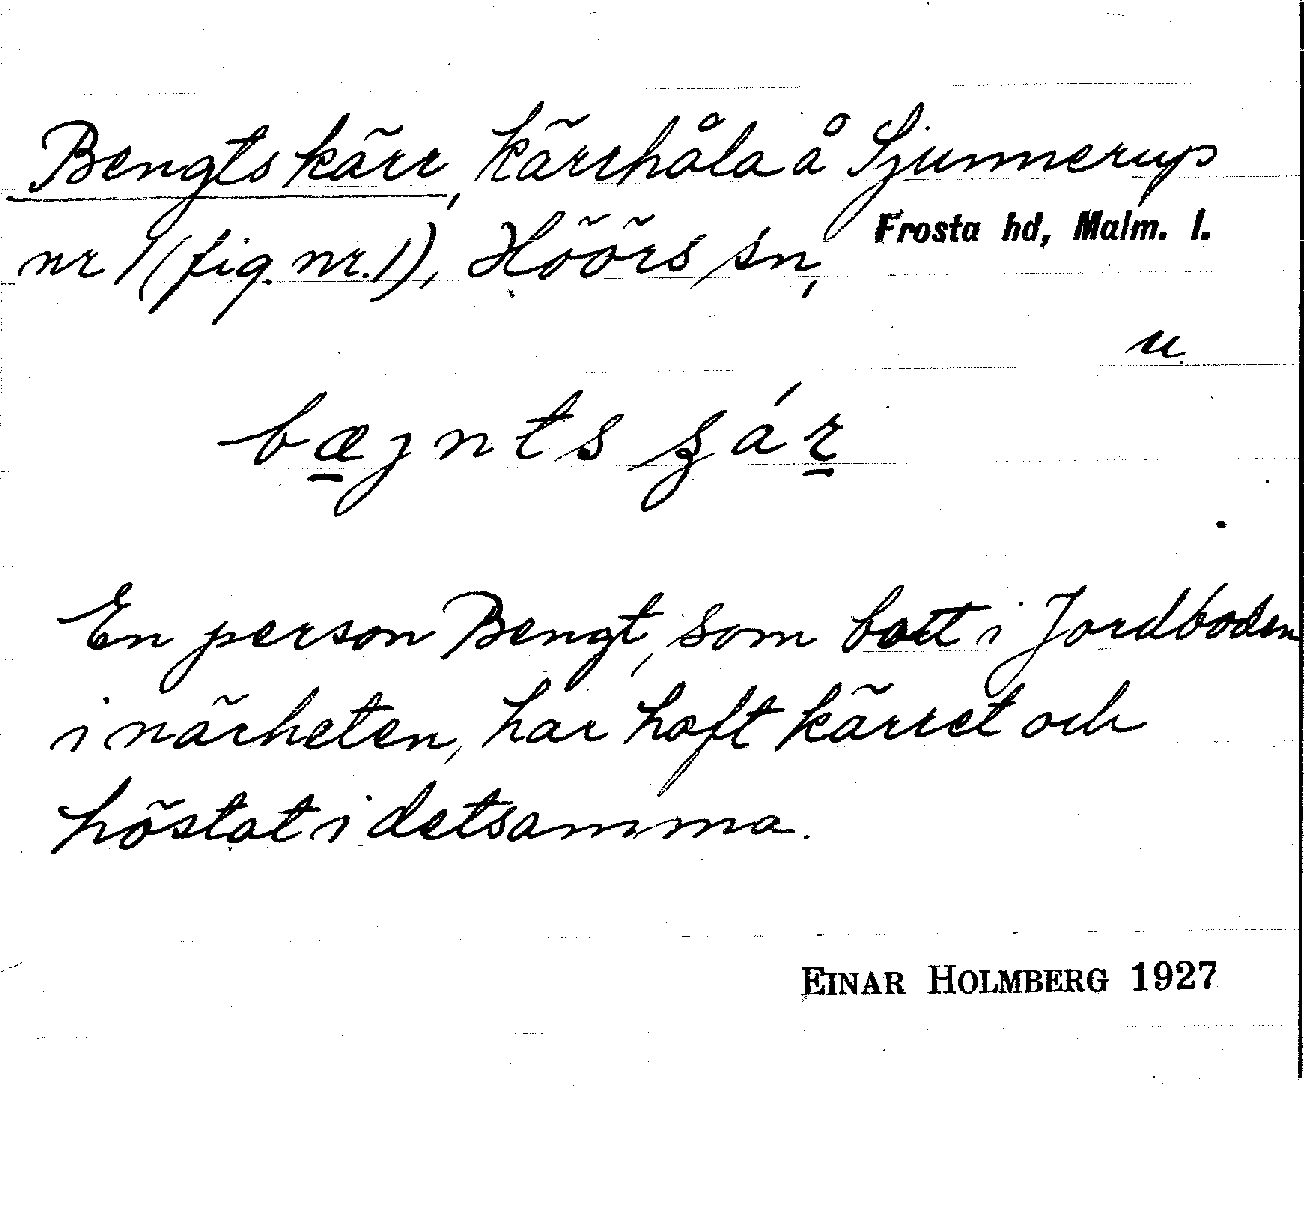 Bengts kärr, kärrhåla å Sjunnerup
nr 1 (fig. nr. 1), Höörs sn, Frosta hd, Malm. l.
u.
bæjnts
En person Bengt, som bott i Jordboden
i närheten, har haft kärret och
höstat i detsamma.
EINAR HOLMBERG 1927